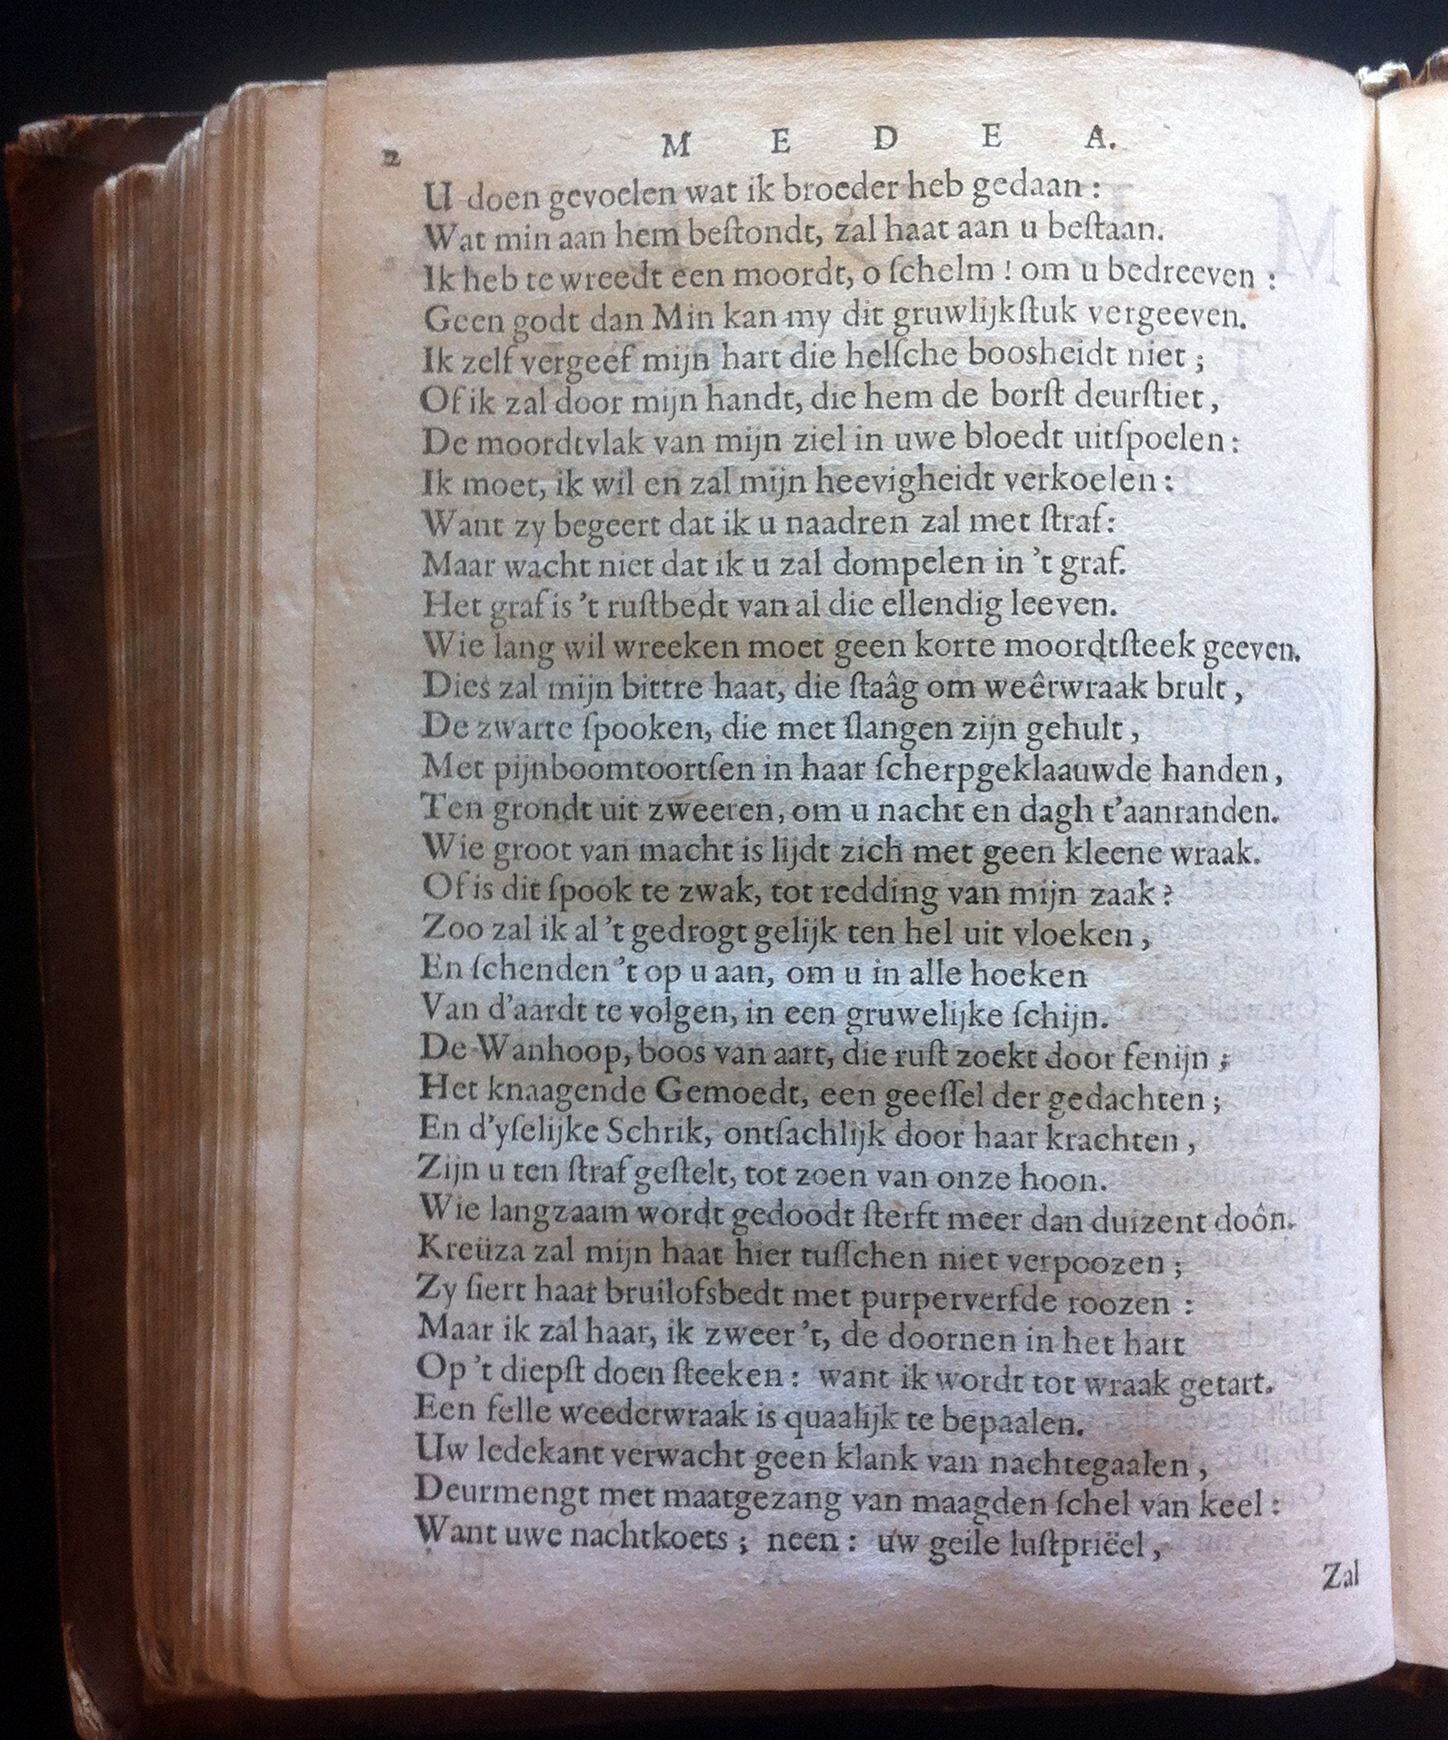 2 MEDEA.
U doen gevoelen wat ik broeder heb gedaan:
Wat min aan hem beſtondt, zal haat aan u beſtaan.
Ik heb te wreedt een moordt, o ſchelm! om u bedreeven:
Geen godt dan Min kan my dit gruwlijkſtuk vergeeven.
Ik zelf vergeef mijn hart die helſche boosheidt niet;
Of ik zal door mijn handt, die hem de borſt deurſtiet,
De moordtvlak van mijn ziel in uwe bloedt uitſpoelen:
Ik moet, ik wil en zal mijn heevigheidt verkoelen:
Want zy begeert dat ik u naadren zal met ſtraf:
Maar wacht niet dat ik u zal dompelen in 't graf.
Het graf is 't ruſtbedt van al die ellendig leeven.
Wie lang wil wreeken moet geen korte moordtſteek geeven.
Dies zal mijn bittre haat, die ſtaâg om weêrwraak brult,
De zwarte ſpooken, die met ſlangen zijn gehult,
Met pijnboomtoortſen in haar ſcherpgeklaauwde handen,
Ten grondt uit zweeren, om u nacht en dagh t'aanranden.
Wie groot van macht is lijdt zich met geen kleene wraak.
Of is dit ſpook te zwak, tot redding van mijn zaak?
Zoo zal ik al 't gedrogt gelijk ten hel uit vloeken,
En ſchenden 't op u aan, om u in alle hoeken
Van d'aardt te volgen, in een gruwelijke ſchijn.
De Wanhoop, boos van aart, die ruſt zoekt door fenijn;
Het knaagende Gemoedt, een geeſſel der gedachten;
En d'yſelijke Schrik, ontſachlijk door haar krachten,
Zijn u ten ſtraf geſtelt, tot zoen van onze hoon.
Wie langzaam wordt gedoodt ſterft meer dan duizent doôn.
Kreüza zal mijn haat hier tuſſchen niet verpoozen;
Zy ſiert haar bruilofsbedt met purperverfde roozen:
Maar ik zal haar, ik zweer 't, de doornen in het hart
Op 't diepſt doen ſteeken: want ik wordt tot wraak getart.
Een felle weederwraak is quaalijk te bepaalen.
Uw ledekant verwacht geen klank van nachtegaalen,
Deurmengt met maatgezang van maagden ſchel van keel:
Want uwe nachtkoets; neen: uw geile luſtpriëel,
Zal